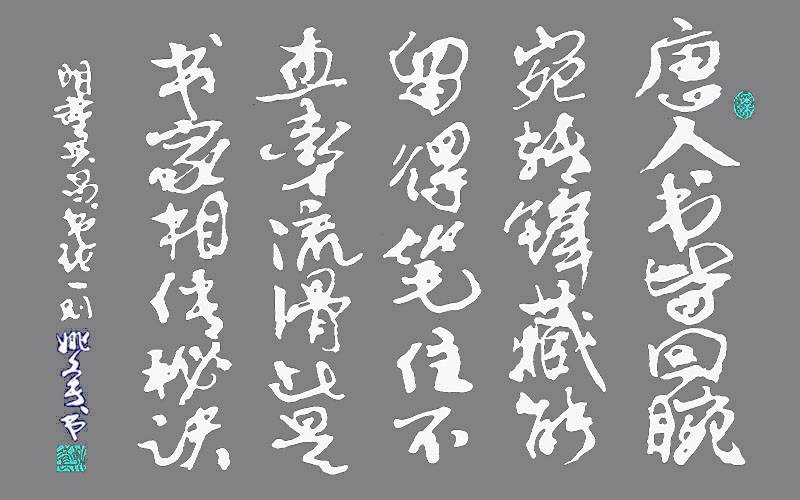 唐人书皆回腕
宛转锋藏能
留得笔住不
直率流滑此是
书家相传秘诀
明董其昌书论一则
书